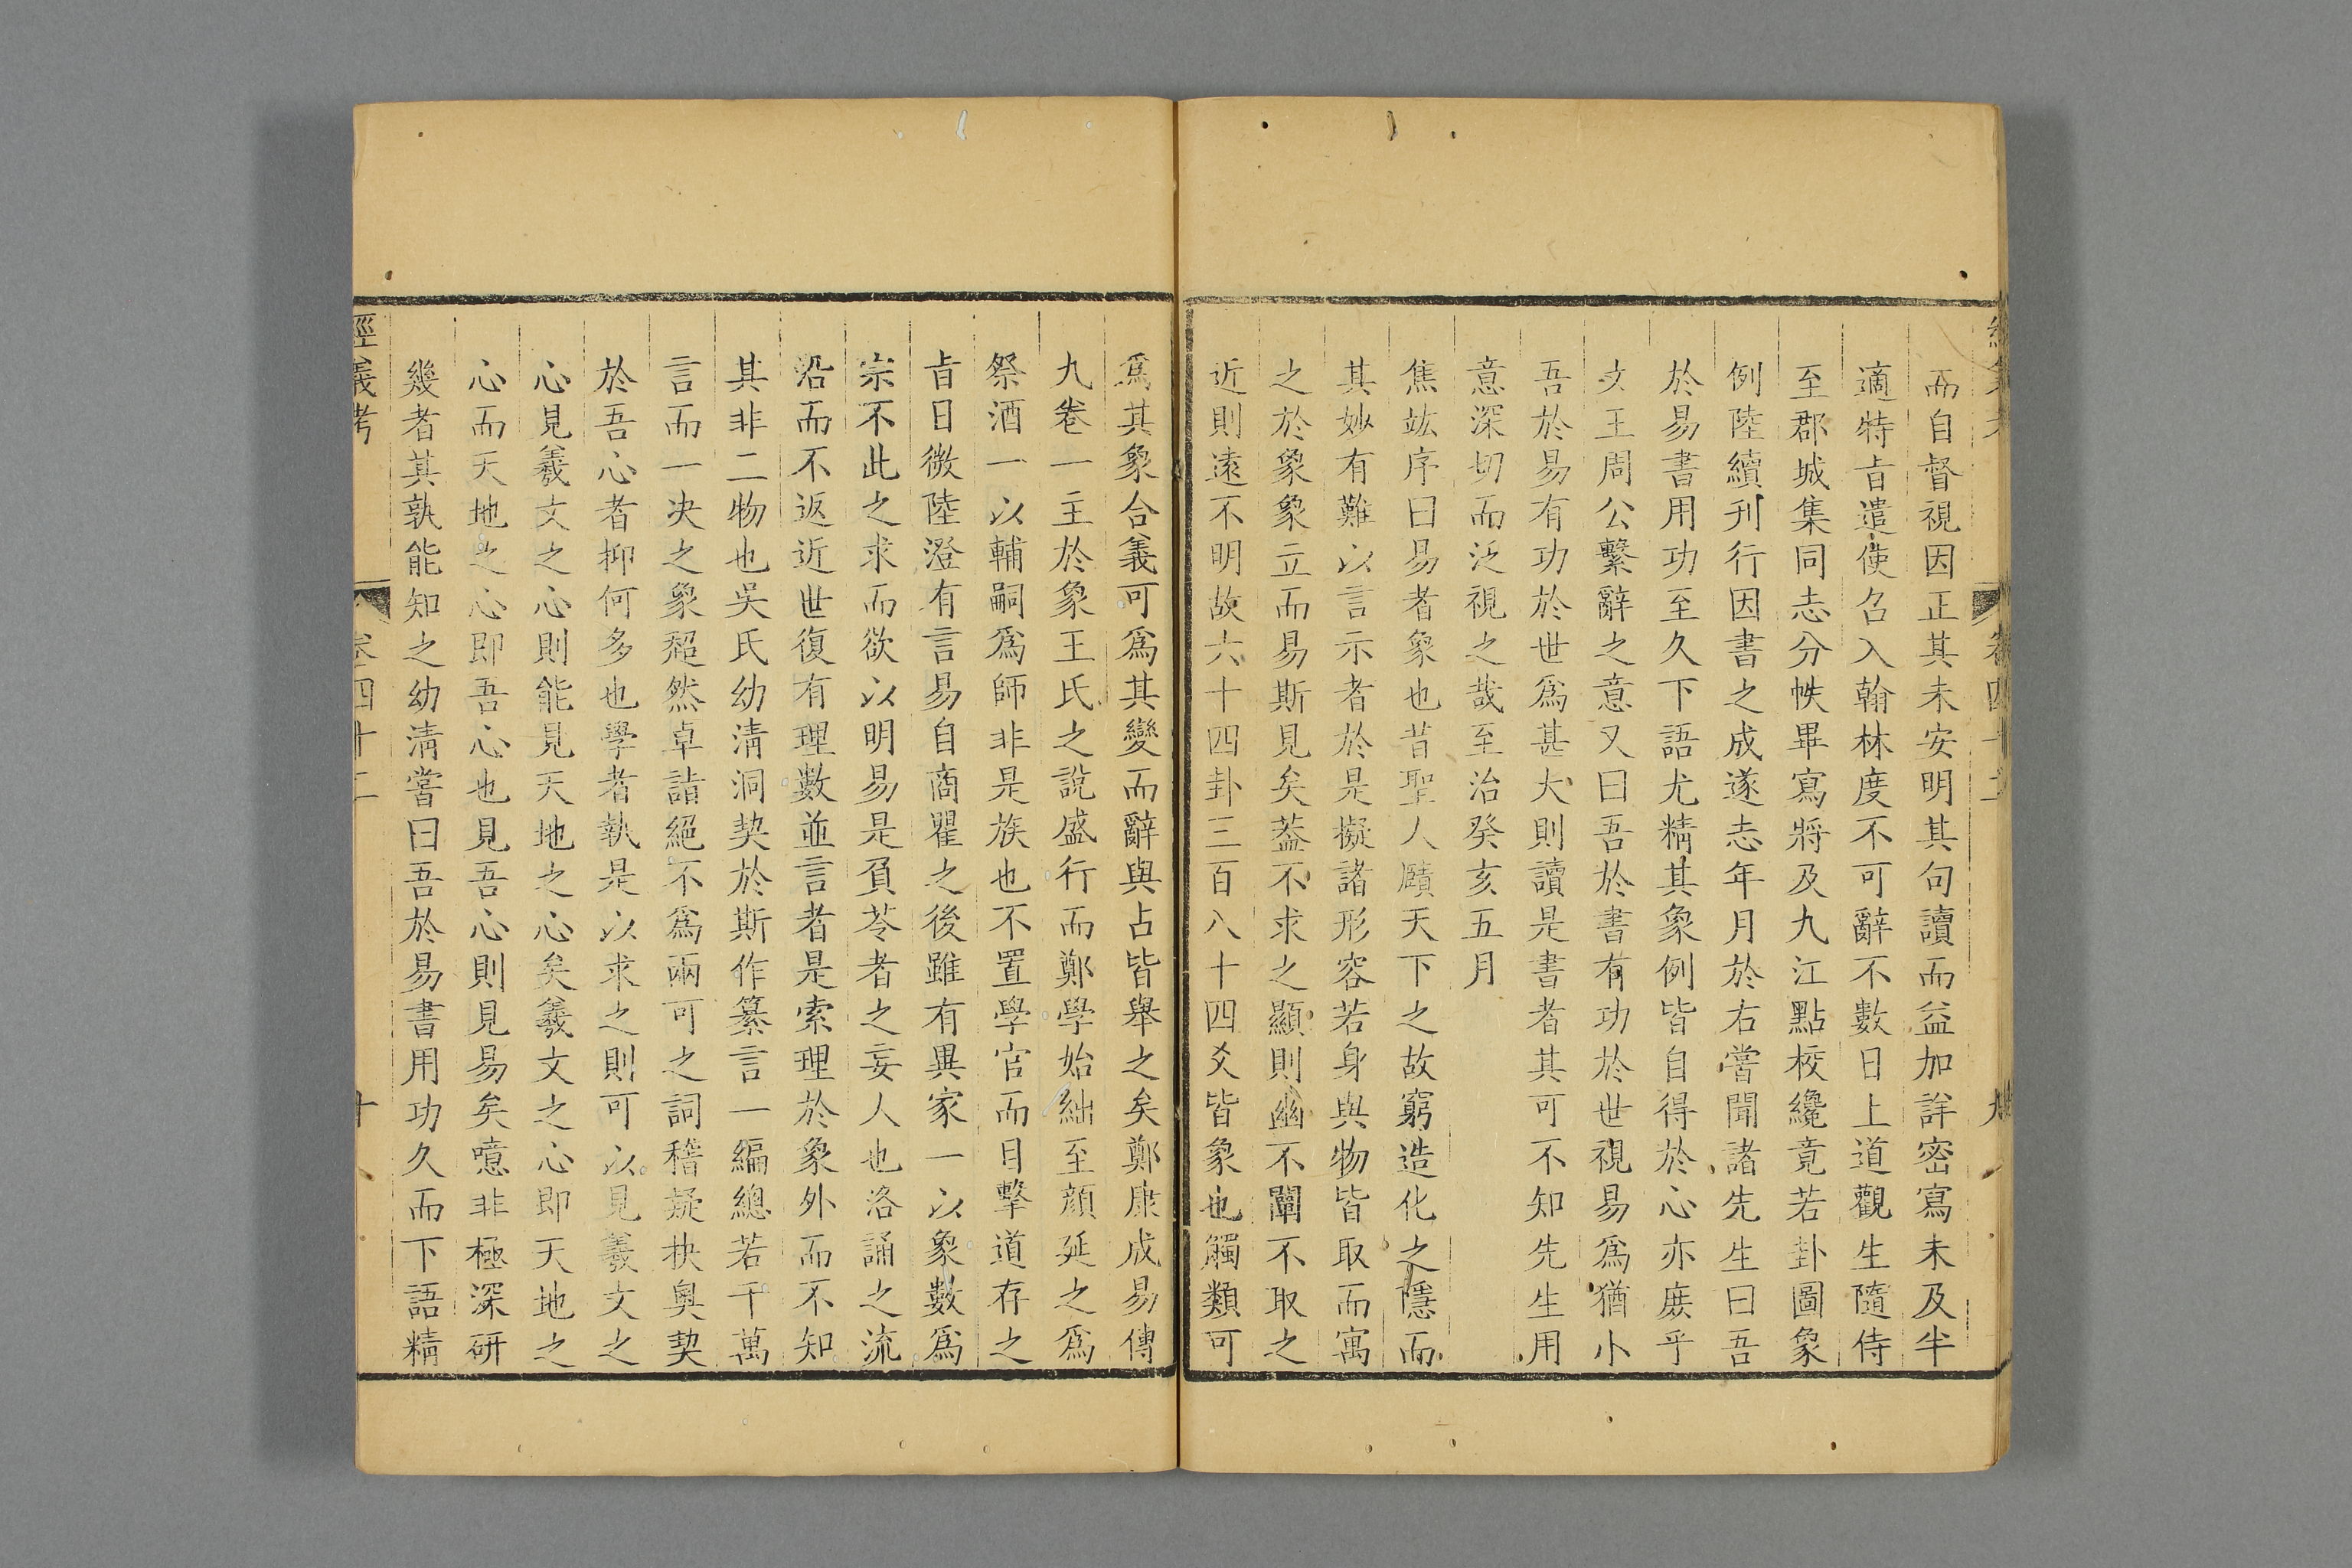 而自督視因正其未安明其句讀而益加詳密寫未及半
適特㫖遣使召入翰林度不可辭不數日上道觀生隨侍
至郡城集同志分帙畢寫將及九江點校纔竟若卦圖象
例陸續刊行因書之成遂志年月於右嘗聞諸先生曰吾
於易書用功至久下語尤精其象例皆自得於心亦庶乎
文王周公繫辭之意又曰吾於書有功於世視易爲猶小
吾於易有功於世爲甚大則讀是書者其可不知先生用
意深切而泛視之哉至治癸亥五月
焦竑序曰易者象也昔聖人賾天下之故窮造化之隱而
其妙有難以言示者於是擬諸形容若身與物皆取而寓
之於象象立而易斯見矣葢不求之顯則幽不闡不取之
近則遠不明故六十四卦三百八十四爻皆象也觸類可
爲其象合義可爲其變而辭與占皆舉之矣鄭康成易傳
九卷一主於象王氏之說盛行而鄭學始絀至顔延之爲
祭酒一以輔嗣爲師非是族也不置學官而目擊道存之
㫖日微陸澄有言易自商瞿之後雖有異家一以象數爲
宗不此之求而欲以明易是負苓者之妄人也洛誦之流
沿而不返近世復有理數並言者是索理於象外而不知
其非二物也吳氏幼清洞契於斯作纂言一編總若干萬
言而一决之象超然卓詣絕不爲兩可之詞稽疑抉奥契
於吾心者抑何多也學者執是以求之則可以見羲文之
心見羲文之心則能見天地之心矣羲文之心即天地之
心而天地之心即吾心也見吾心則見易矣噫非極深研
幾者其孰能知之幼清嘗曰吾於易書用功久而下語精
經義考
卷四十二
十